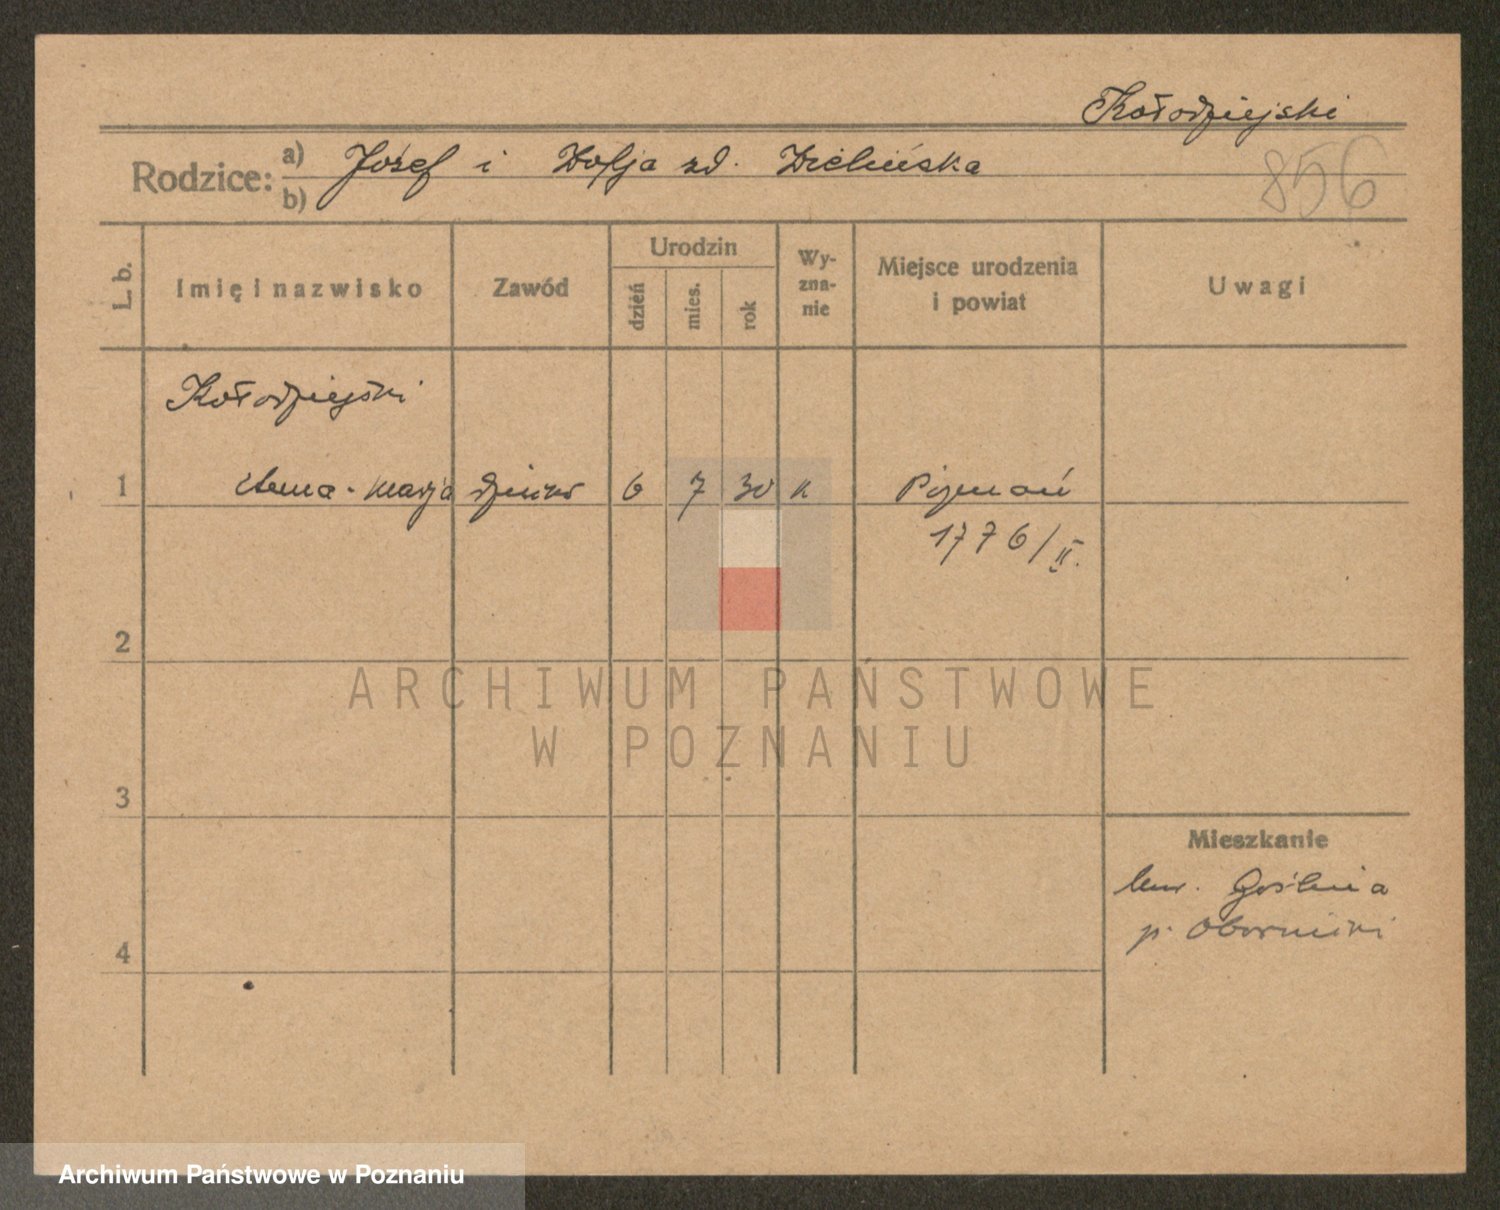 Kołodziejski
Rodzice: a) Józef i Zofja zd. Zielińska
b)
856
L. b. Imię i nazwisko Zawód Urodzin dzień mies. rok Wyznanie Miejsce urodzenia i powiat Uwagi
Kołodziejski
1 Anna-Marja 6 7 30 k Poznań
1776/II.
2
ARCHIWUM PAŃSTWOWE
W POZNANIU
3
Mieszkanie
Goślina
p. Oborniki
4
Archiwum Państwowe w Poznaniu